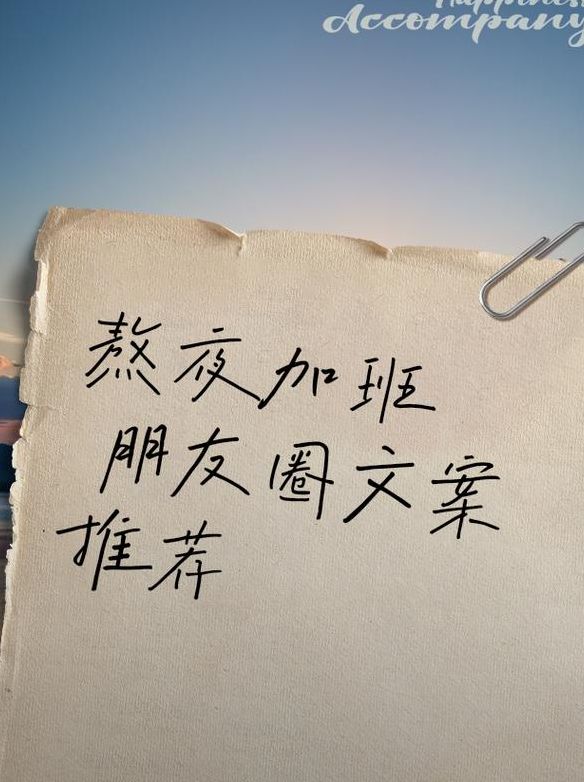 Happiness
Accompany
熬夜加班
朋友圈文案
推荐